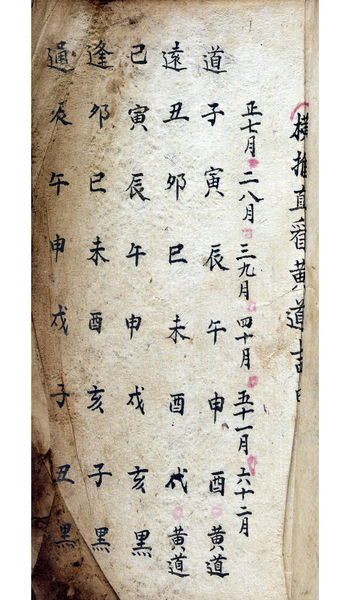 橫推直看黃道吉日
正七月 二八月 三九月 四十月 五十一月 六十二月
道 子 寅 辰 午 申 酉 黃道
遠 丑 卯 巳 未 酉 戌 黃道
己 寅 辰 午 申 戌 亥 黑
逢 卯 巳 未 酉 亥 子 黑
通 辰 午 申 戌 子 丑 黑